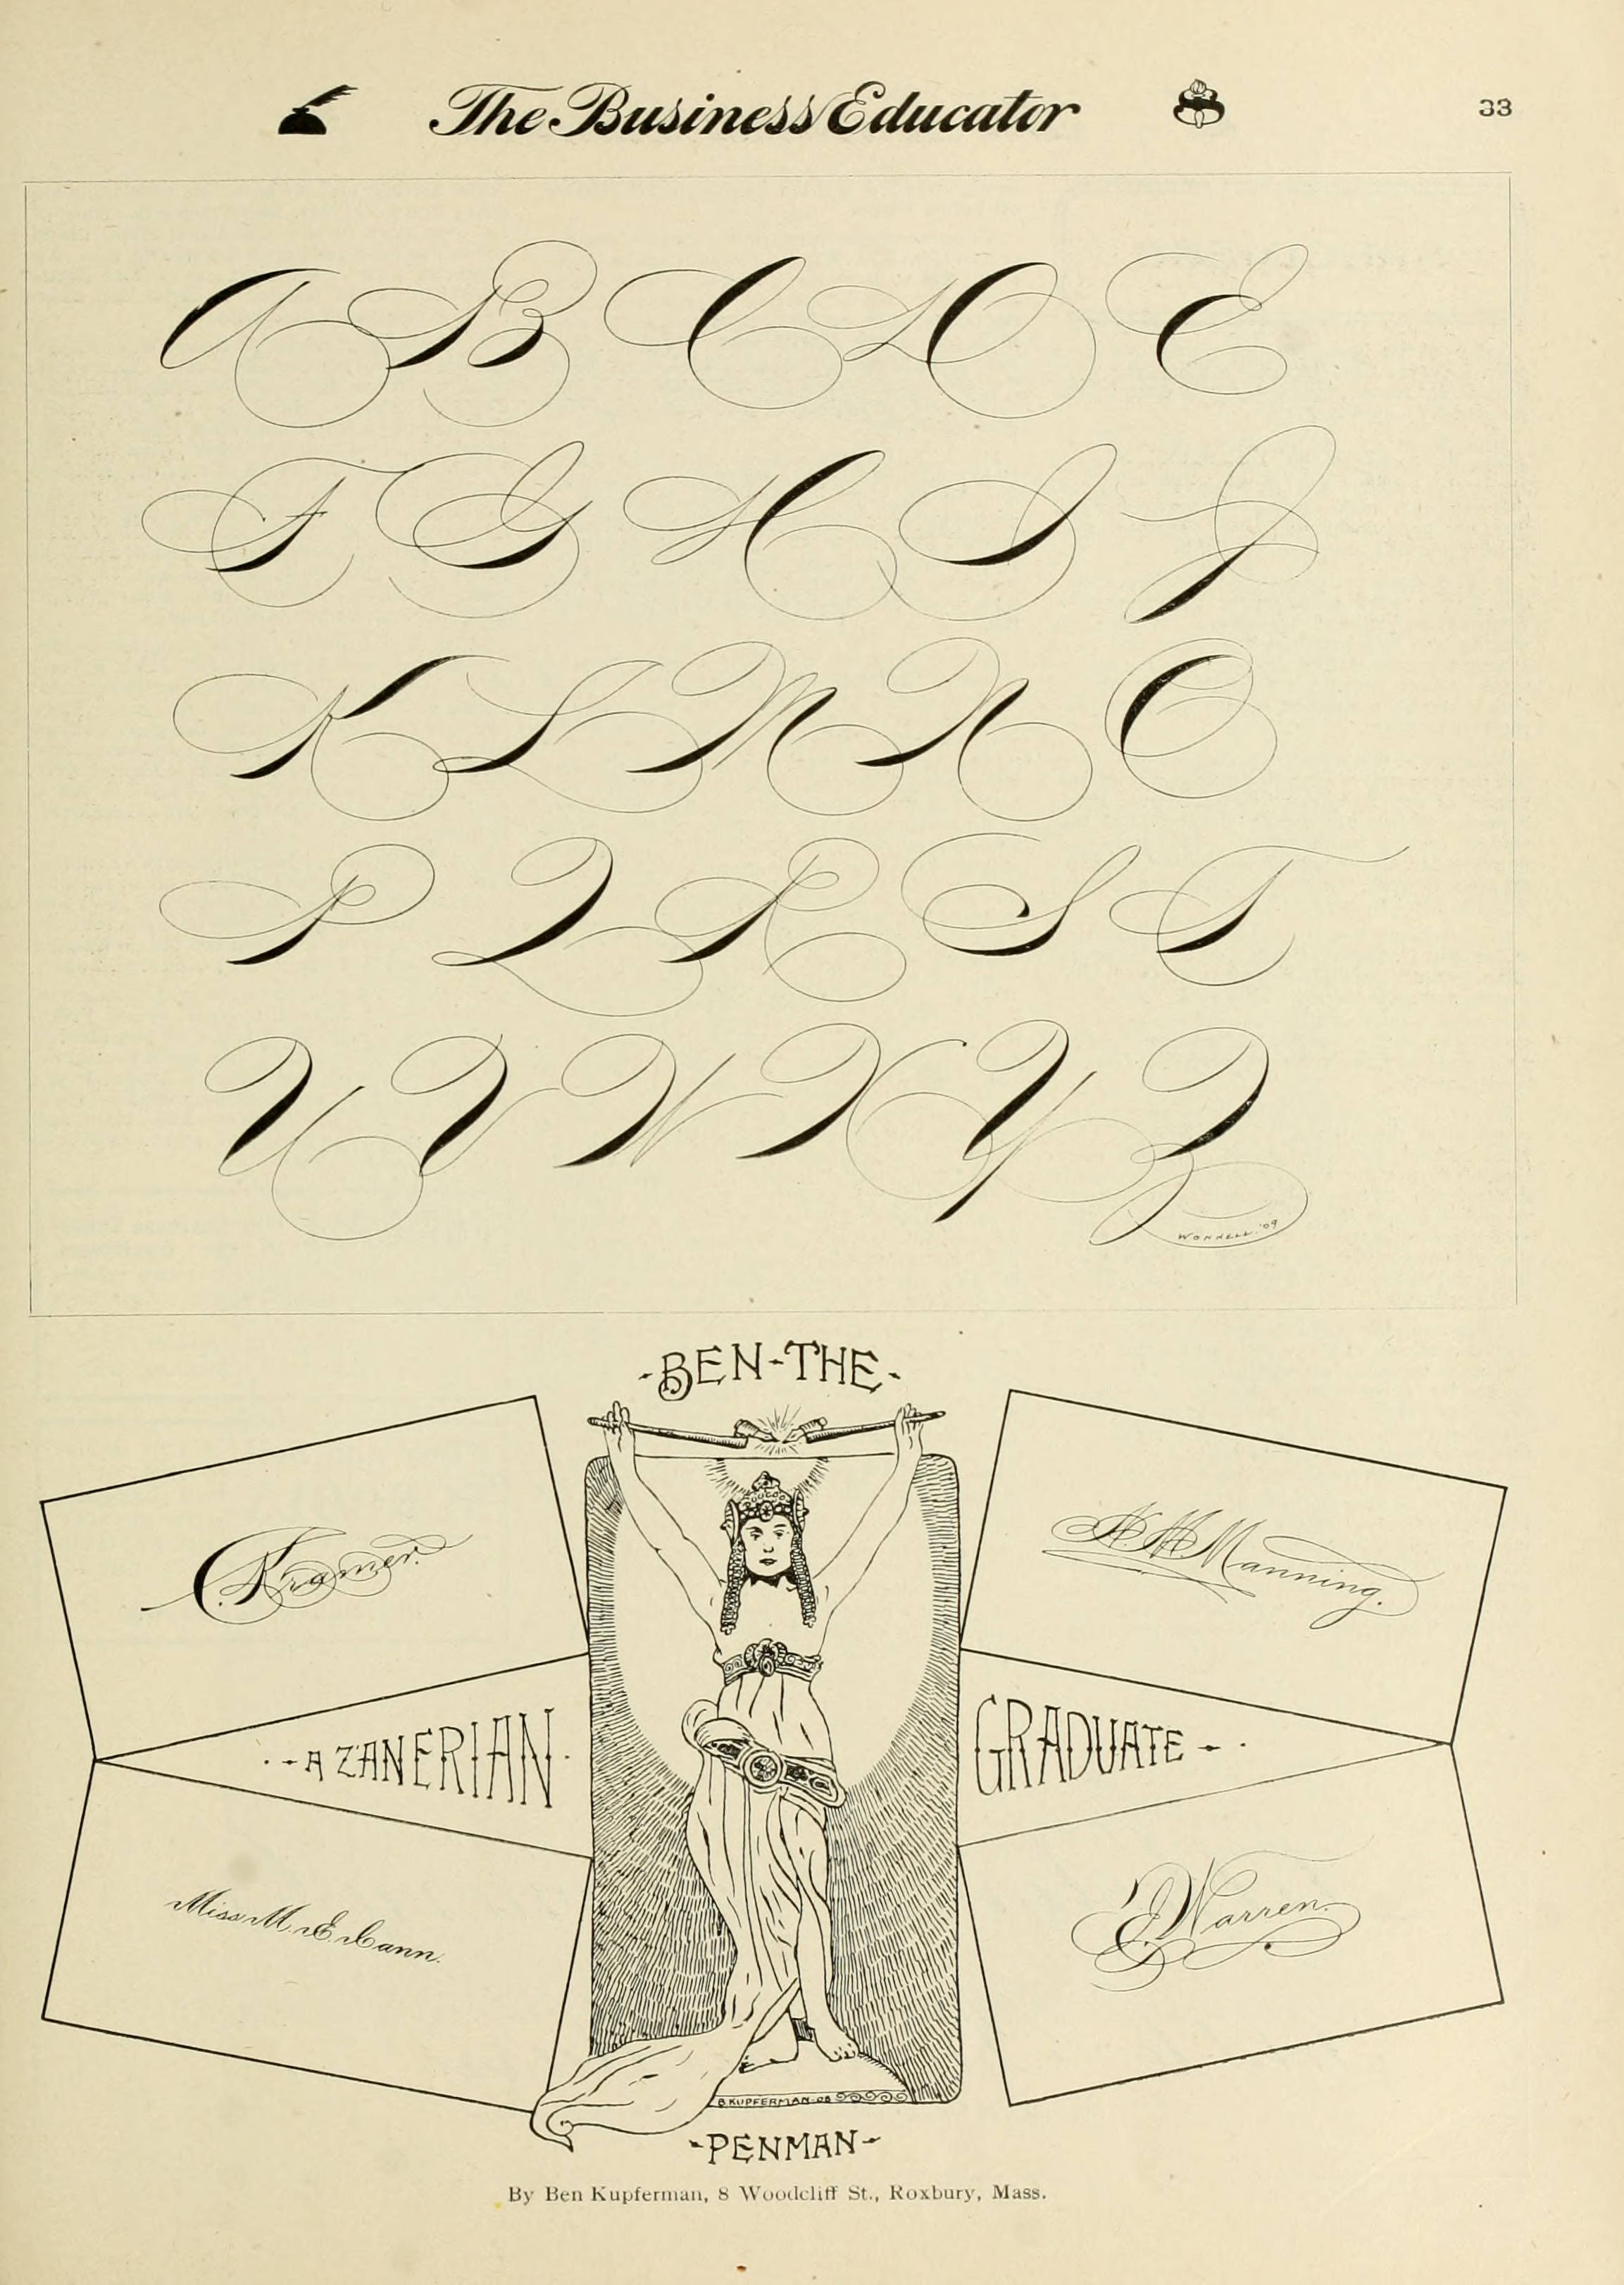 The Business Educator 33
A B C D E
F G H I J
K L M N O
P Q R S T
U V W X Y Z
WONNELL '09
-BEN-THE-
C. Kramer.
A. H. Manning.
--A ZANERIAN-
GRADUATE--
Miss M. E. Cann.
E. J. Warren.
B. KUPFERMAN-08
-PENMAN-
By Ben Kupferman, 8 Woodcliff St., Roxbury, Mass.